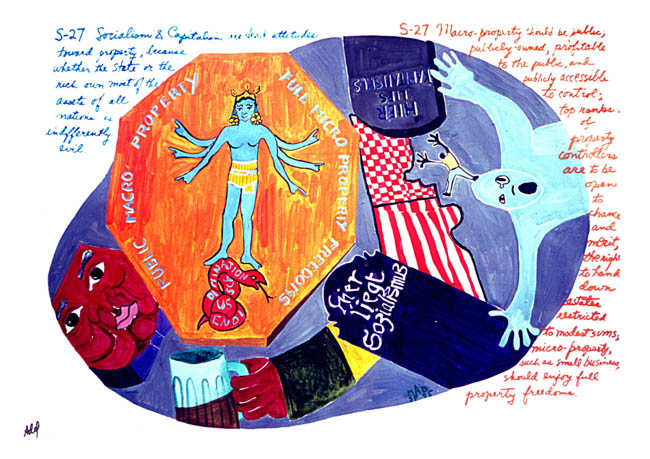 S-27 Socialism & Capitalism are dead attitudes
toward property, because
whether the State or the
rich own most of the
assets of all
nations is
indifferently
evil
S-27 Macro-property should be public,
publicly-owned, profitable
to the public, and
publicly accessible
to control;
top ranks
of
property
controllers
are to be
open
to
chance
and
merit,
the right
to hand
down
estates
restricted
to modest sums;
micro-property,
such as small business,
should enjoy full
property freedoms.
PUBLIC MACRO PROPERTY
FULL MICRO PROPERTY FREEDOMS
HIER LIES
Hier
liegt
Sozialismus